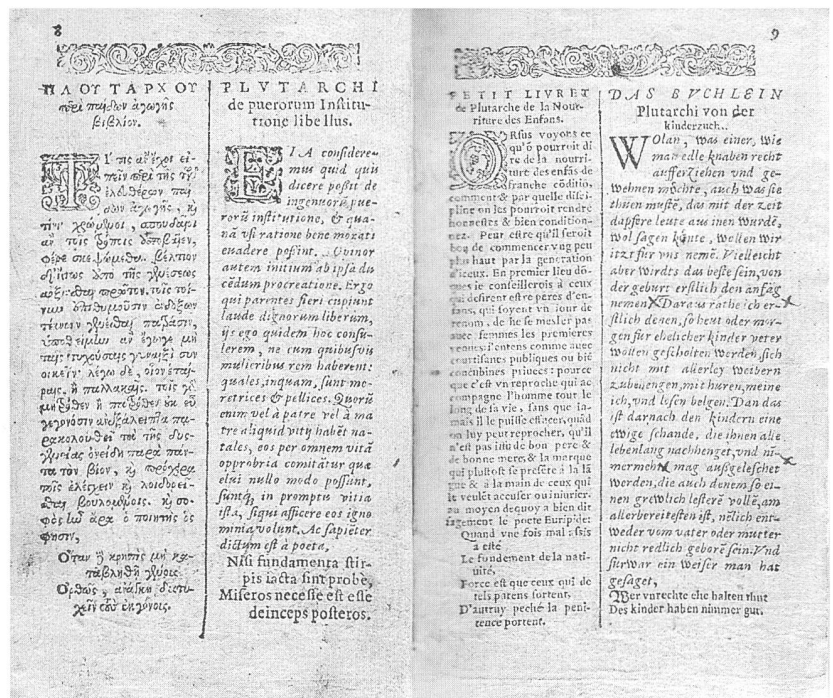 8
ΠΛΟΥΤΑΡΧΟΥ
περὶ παίδων ἀγωγῆς
βιβλίον.
Τί τις ἂν ἔχοι εἰ-
πεῖν περὶ τῆς τῶν
ἐλευθέρων παί
δων ἀγωγῆς, κὶ
τίνι χρώμενοι, σπουδαῖοι
ἂν τοὺς τρόπους ἀποβαῖεν,
φέρε σκεψώμεθα. βέλτιον
δ' ἴσως ἀπὸ τῆς γενέσεως
ἄρξασθαι πρῶτον. τοῖς τοί-
νυν ἐπιθυμοῦσιν ἐνδόξων
τέκνων γενέσθαι πατράσιν,
ὑποθείμην ἂν ἔγωγε μὴ
ταῖς τυχούσαις γυναιξὶ συν
οικεῖν· λέγω δὲ, οἷον ἑταί-
ραις, ἢ παλλακαῖς. τοῖς γὰρ
μητρόθεν ἢ πατρόθεν οὐκ εὖ
γεγονόσιν ἀνεξάλειπτα πα-
ρακολουθεῖ τὰ τῆς δυσ-
γενείας ὀνείδη παρὰ πάν-
τα τὸν βίον, κὶ πρόχειρα
τοῖς ἐλέγχειν κὶ λοιδορεῖ-
σθαι βουλομένοις. κὶ σο-
φὸς ἦν ἄρα ὁ ποιητὴς ὅς
φησιν,
Ὅταν ἡ κρηπὶς μὴ κα-
ταβληθῇ γένους
Ὀρθῶς, ἀνάγκη δυστυ-
χεῖν τοὺς ἐκγόνους.
PLVTARCHI
de puerorum Institu-
tione libellus.
EIA considere-
mus quid quis
dicere possit de
ingenuorū pue-
rorū institutione, & qua-
nā vsi ratione bene morati
euadere possint. Quinor
autem initium ab ipsa du
cēdum procreatione. Ergo
qui parentes fieri cupiunt
laude dignorum liberum,
ijs ego quidem hoc consu-
lerem, ne cum quibusuis
mulieribus rem haberent:
quales, inquam, sunt me-
retrices & pellices. Quorū
enim vel à patre vel à ma
tre aliquid vitij habēt na-
tales, eos per omnem vitā
opprobria comitātur quæ
elui nullo modo possunt,
suntq́; in promptu vitia
ista, siqui afficere eos igno
minia volunt. Ac sapiēter
dictum est à poeta,
Nisi fundamenta stir-
pis iacta sint probe,
Miseros necesse est esse
deinceps posteros.
9
PETIT LIVRET
de Plutarche de la Nour-
riture des Enfans.
ORsus voyons ce
qu'ō pourroit di
re de la nourri-
ture des enfās de
franche cōditiō,
comment & par quelle disci-
pline on les pourroit rendre
honnestes & bien condition-
nez. Peut estre qu'il seroit
bon de commencer vng peu
plus haut par la generation
d'iceux. En premier lieu dō-
ques ie conseillerois à ceux
qui desirent estre peres d'en-
fans, qui soyent vn iour de
renom, de ne se mesler pas
auec femmes les premieres
venues: i'entens comme auec
courtisanes publiques ou biē
concubines priuees: pource
que c'est vn reproche qui ac
compagne l'homme tout le
long de sa vie, sans que ia-
mais il le puisse effacer, quād
on luy peut reprocher, qu'il
n'est pas issu de bon pere &
de bonne mere, & la marque
qui plustost se presēte à la lā
gue & à la main de ceux qui
le veulēt accuser ou iniurier.
au moyen dequoy a bien dit
sagement le poete Euripide:
Quand vne fois mal assis
a esté
Le fondement de la nati-
uité,
Force est que ceux qui de
tels parens sortent,
D'autruy peché la peni-
tence portent.
DAS BVCHLEIN
Plutarchi von der
kinderzuch.
WOlan, was einer, wie
man edle knaben recht
aufferziehen und ge-
wehnen möchte, auch was sie
thuen mustē, das mit der zeit
dapfere leute aus inen wurdē,
wol sagen kōnte, wollen wir
itzt für vns nemē. Vielleicht
aber wirdts das beste sein, von
der geburt erstlich den anfāg
nemen. Daraus rathe ich er-
stlich denen, so heut oder mor-
gen für ehelicher kinder veter
wollen gescholten werden, sich
nicht mit allerley weibern
zubemengen, mit huren, meine
ich, vnd lesen belgen. Dan das
ist darnach den kindern eine
ewige schande, die ihnen alle
lebenlang nachhenget, vnd ni-
mermehr mag außgeleschet
werden, die auch denem so ei-
nen grewlich lesterē vollē, am
allerbereitesten ist, nēlich ent-
weder vom vater oder mutter
nicht redlich geborē sein. Vnd
fürwar ein weiser man hat
gesaget,
Wer vnrechte ehe halten thut
Des kinder haben nimmer gut.